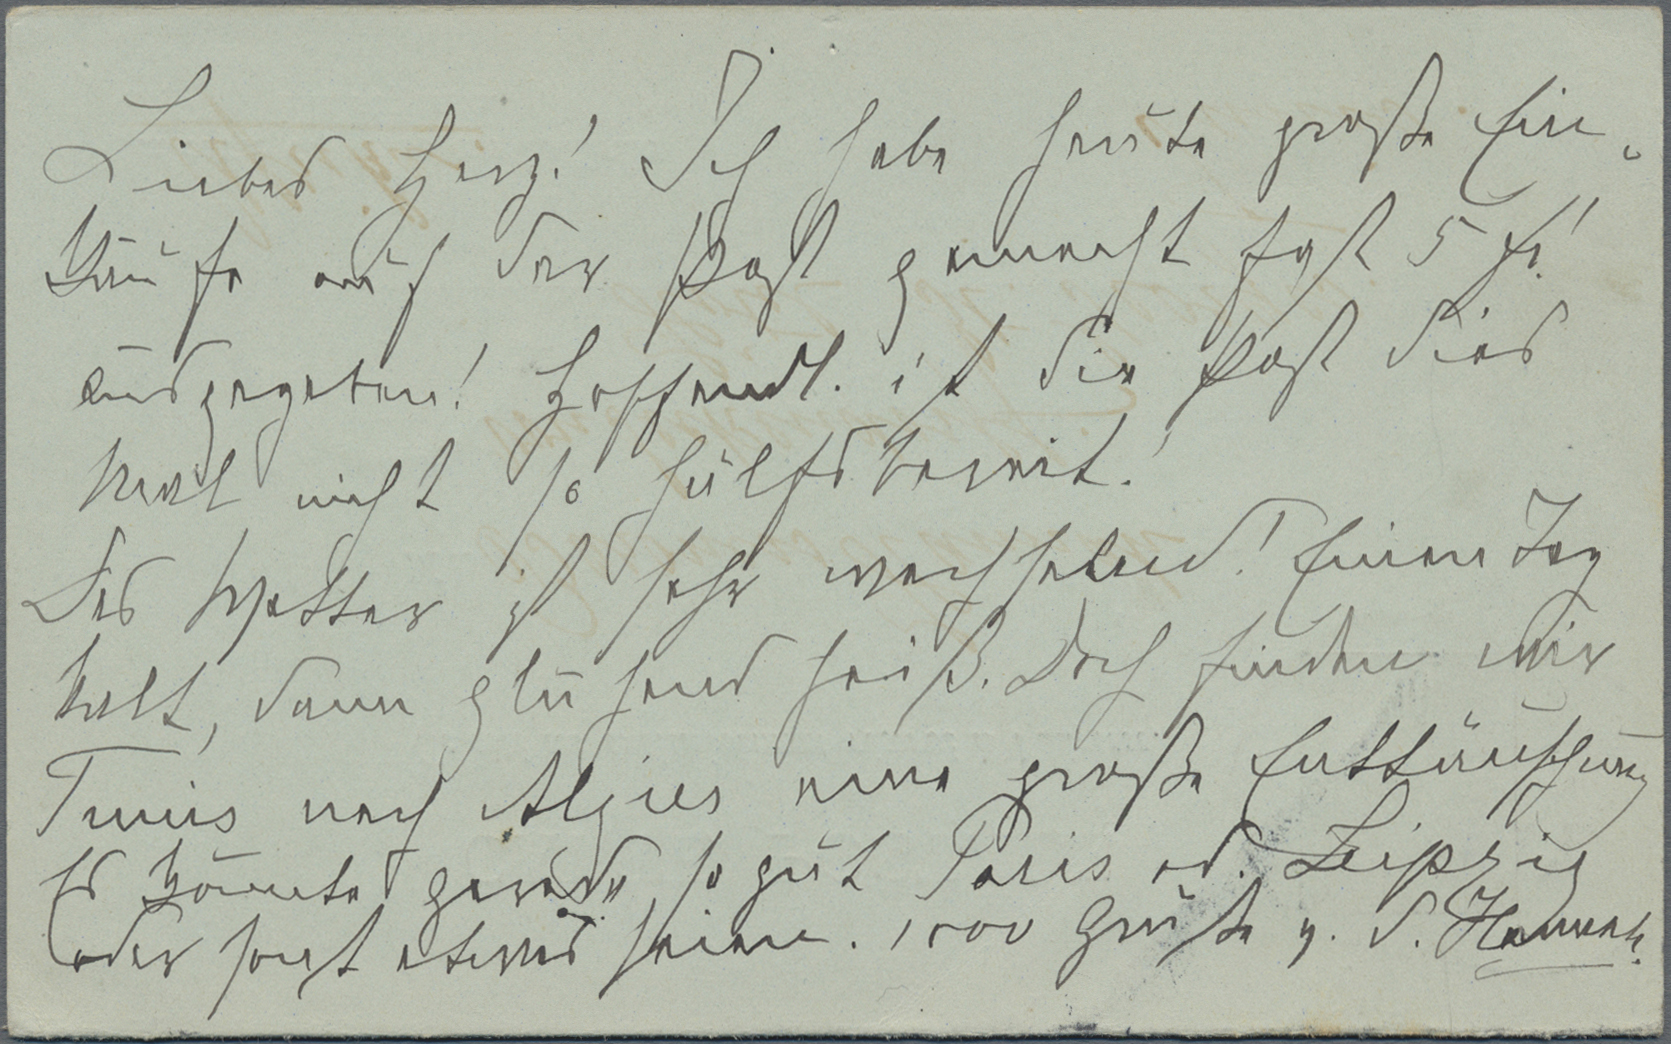 Liebes Herz! Ich habe heute große Ein-
käufe auf der Post gemacht fast 5 fr!
ausgegeben! Hoffendl. ist die Post dies
Mal nicht so hülfsbereit!
Das Wetter ist sehr wechselnd! Einen Tag
kalt, dann glühend heiß. Doch finden wir
Tunis nach Algier eine große Enttäuschung
Es könnte gerade so gut Paris od. Leipzig
oder sonst etwas seien. 1000 Grüße v. d.